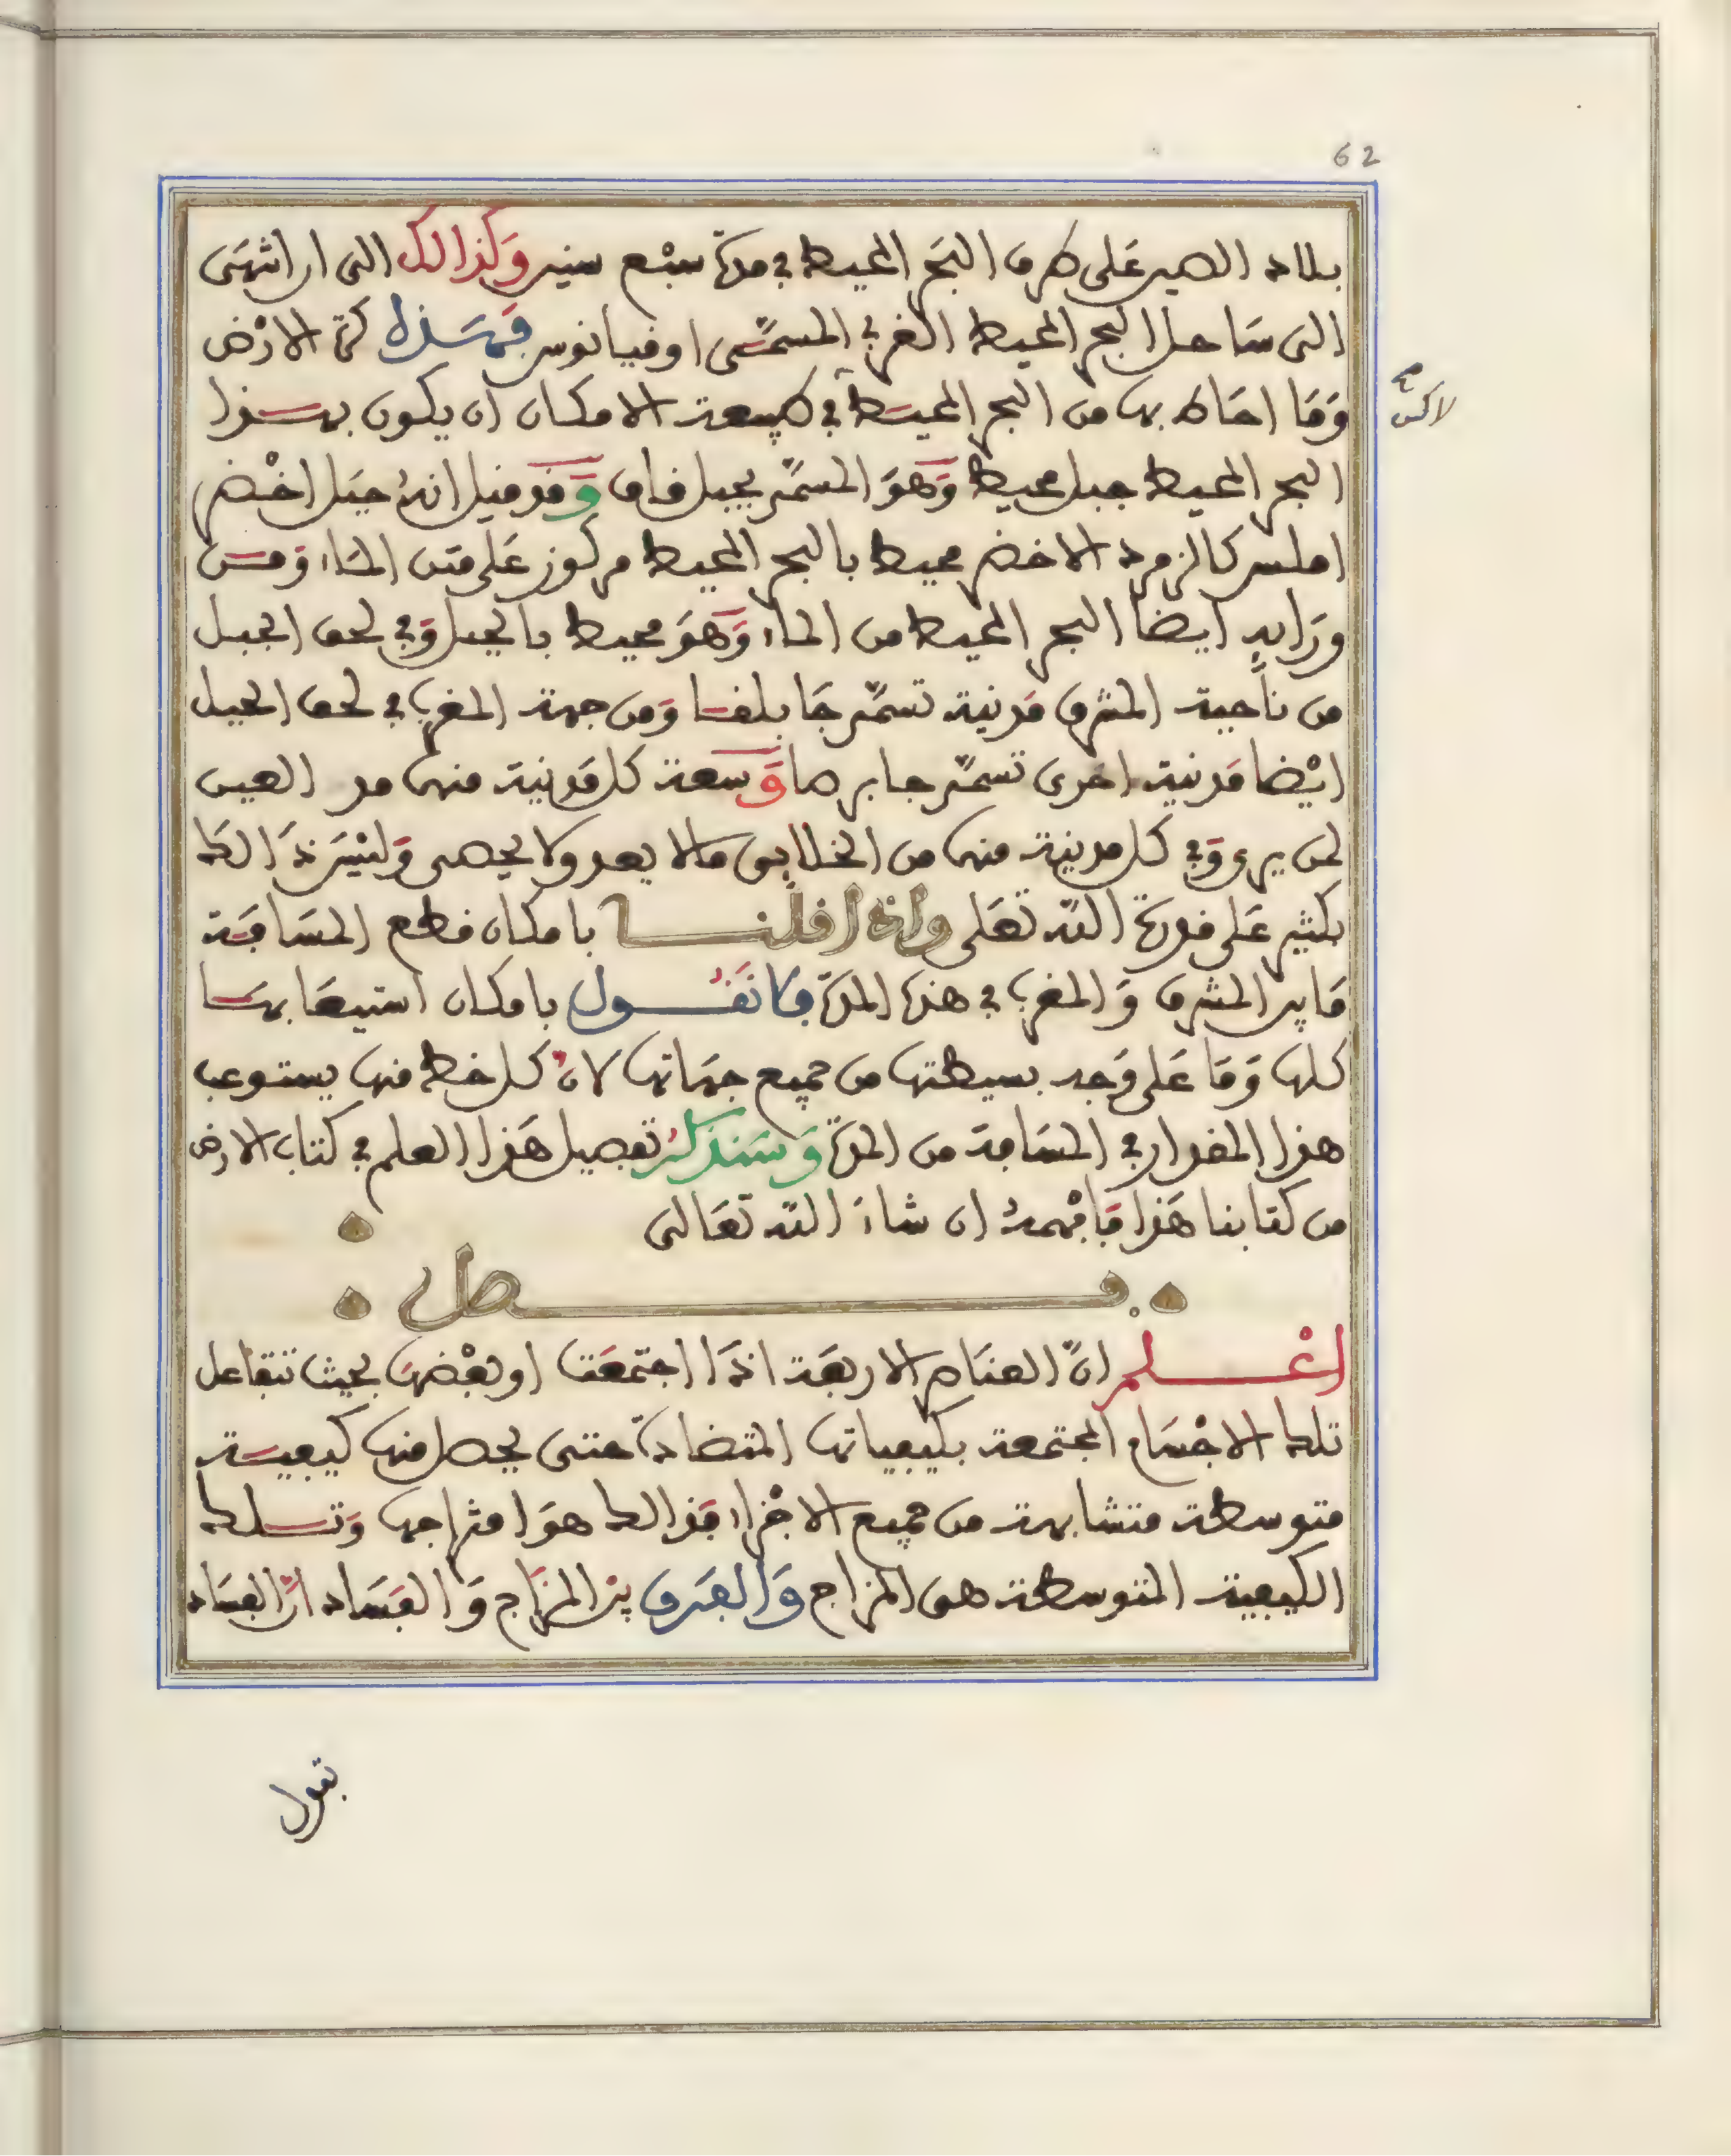 62
بلاد الصين على طرف البحر المحيط في مدة سبع سنين وكذالك الى ان انتهى
الى ساحل البحر المحيط الغربي المسمى اوقيانوس فهذه كرة الارض
وما احاط بها من البحر المحيط في طبيعة الامكان ان يكون بهذا
لاكن صح
البحر المحيط جبل محيط وهو المسمى بجبل قاف وقد قيل انه جبل اخضر
املس كالزمرد الاخضر محيط بالبحر المحيط مركوز على متن الماء ومن
ورايه ايضا البحر المحيط من الماء وهو محيط بالجبل وفي لحف الجبل
من ناحية المشرق مدينة تسمى جابلقا ومن جهة المغرب في لحف الجبل
ايضا مدينة اخرى تسمى جابرصا وسعة كل مدينة منهما مد العين
لمن يرى وفي كل مدينة منهما من الخلايق ما لا يعد ولا يحصى وليس ذالك
بكثير على قدرة الله تعلى واذا قلنا بامكان قطع المسافة
ما بين المشرق والمغرب في هذه المدة فلا نقول بامكان استيعابها
كلها وما على وجه بسيطتها من جميع جهاتها لان كل خط منها يستوعب
هذا المقدار في المسافة من المدة وسنذكر تفصيل هذا العلم في كتاب الارض
من كتابنا هذا فافهمه ان شاء الله تعالى
فصل
اعلم ان العناصر الاربعة اذا اجتمعت او بعضها بحيث تتفاعل
تلك الاجسام المجتمعة بكيفياتها المتضادة حتى يحصل منها كيفية
متوسطة متشابهة من جميع الاجزاء فذالك هو امتزاجها وتلك
الكيفية المتوسطة هى المزاج والفرق بين المزاج والفساد ان الفساد
بتول